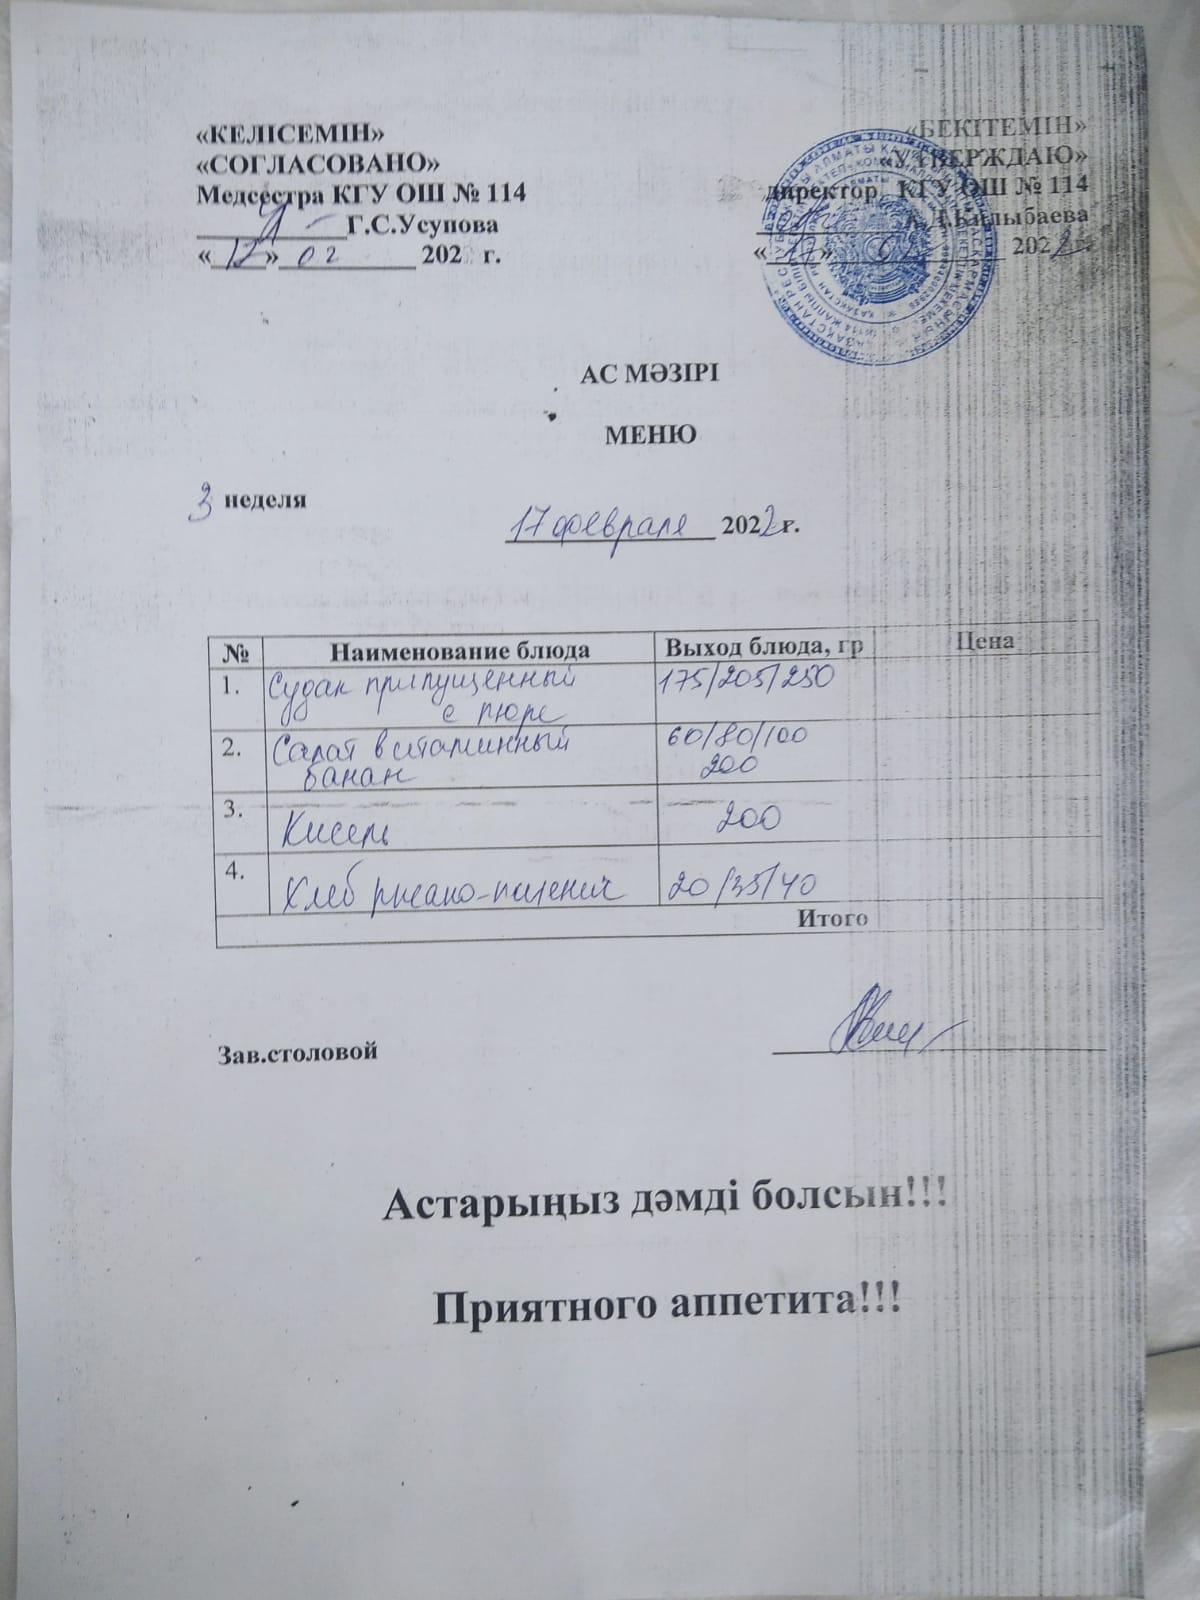 «КЕЛІСЕМІН»
«СОГЛАСОВАНО»
Медсестра КГУ ОШ № 114
Г.С.Усупова
«17» 02 202 г.
«БЕКІТЕМІН»
«УТВЕРЖДАЮ»
директор КГУ ОШ № 114
«17» 2022 г.
АС МӘЗІРІ
МЕНЮ
3 неделя
17 февраля 2022 г.
№ Наименование блюда Выход блюда, гр Цена
1. Судак припущенный 175/205/250
с пюре
2. Салат витаминный 60/80/100
банан 200
3. Кисель 200
4. Хлеб ржано-пшенич 20/35/40
Итого
Зав.столовой
Астарыңыз дәмді болсын!!!
Приятного аппетита!!!